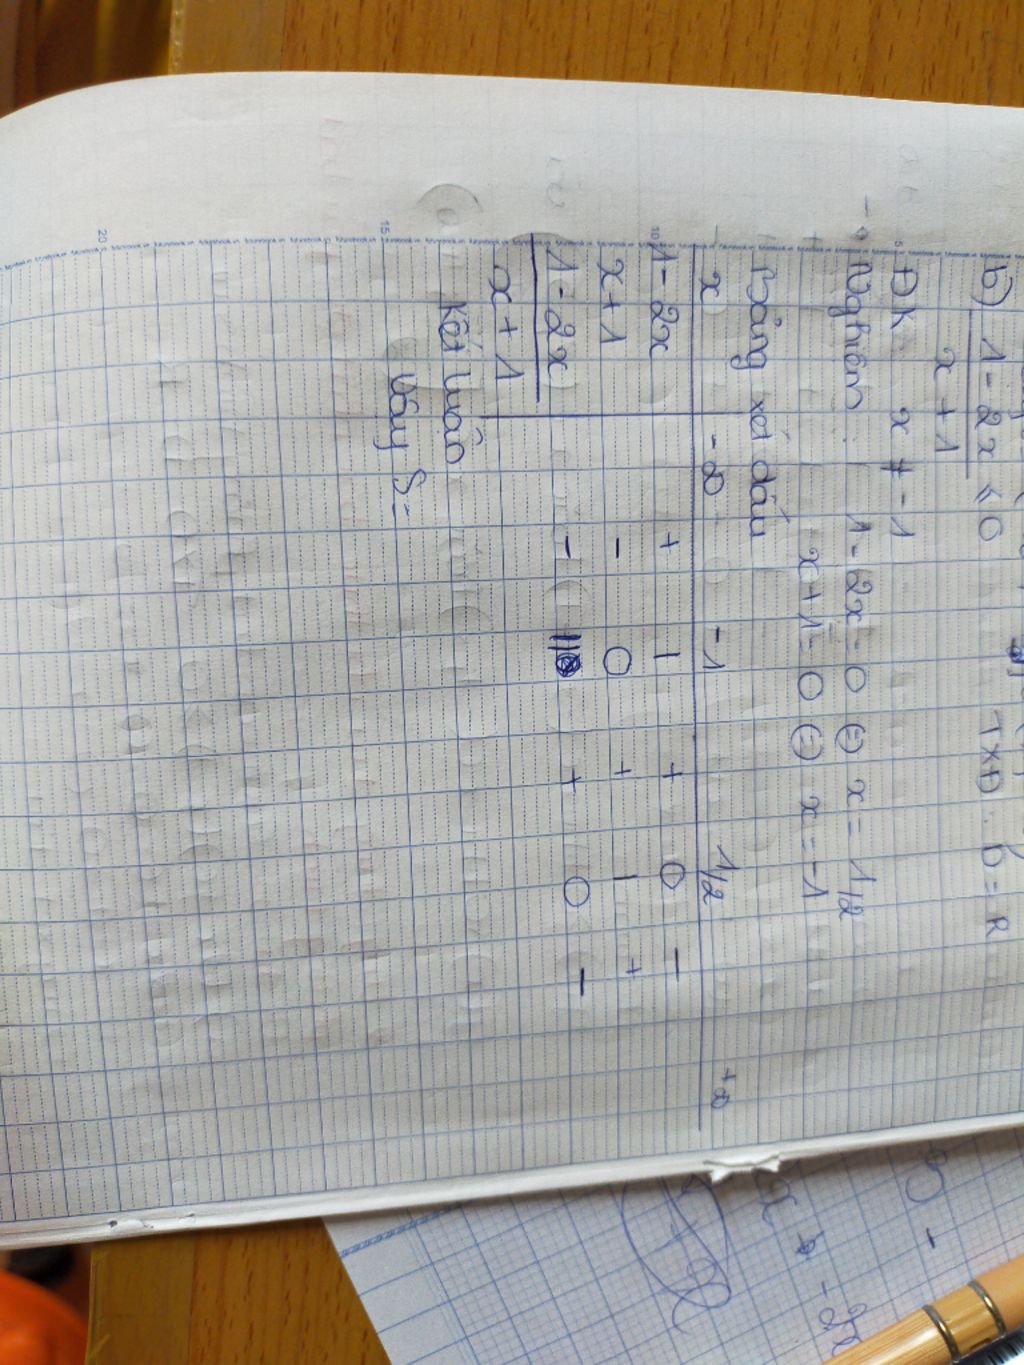 b) 1 - 2x / x + 1 ≤ 0 TXĐ : D = R
ĐK x ≠ -1
Nghiệm : 1 - 2x = 0 ⇔ x = 1/2
x + 1 = 0 ⇔ x = -1
Bảng xét dấu
x -∞ -1 1/2 +∞
1 - 2x + | + 0 -
x + 1 - 0 + | +
1 - 2x / x + 1 - || + 0 -
Kết luận
Vậy S =
5
10
15
20